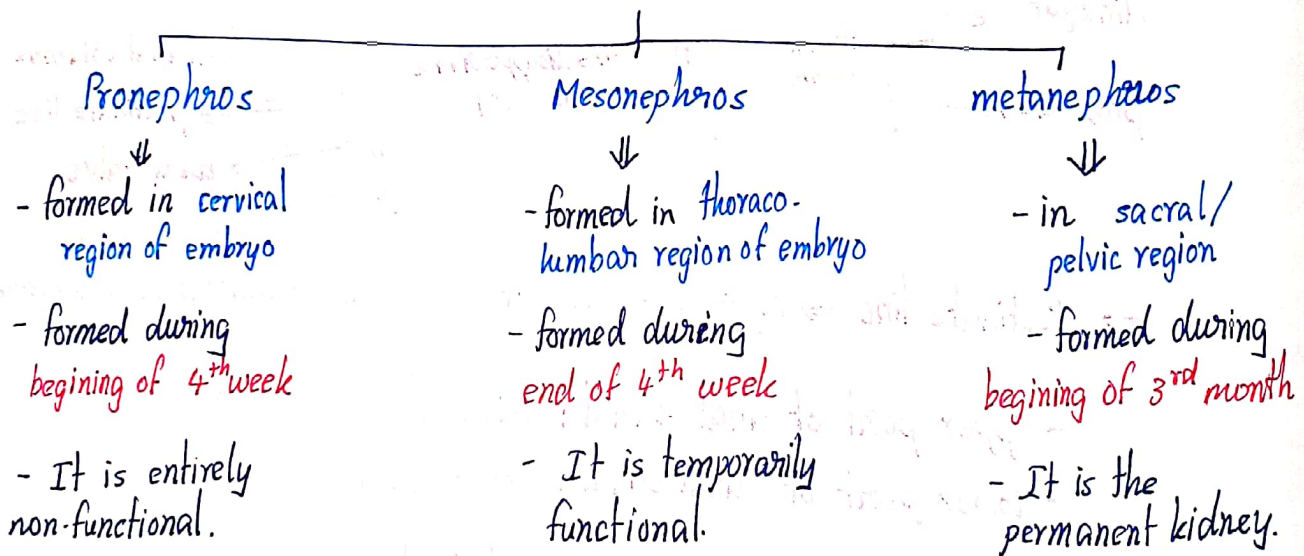 Pronephros
- formed in cervical
region of embryo
- formed during
begining of 4th week
- It is entirely
non-functional.
Mesonephros
- formed in thoraco-
lumbar region of embryo
- formed during
end of 4th week
- It is temporarily
functional.
metanephros
- in sacral/
pelvic region
- formed during
begining of 3rd month
- It is the
permanent kidney.